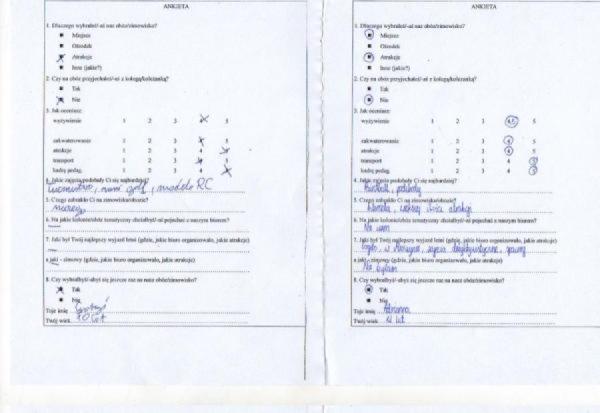 ANKIETA
1. Dlaczego wybrałeś/-aś nasz obóz/zimowisko?
Miejsce
Ośrodek
Atrakcje
Inne (jakie?)
2. Czy na obóz przyjechałeś/-aś z kolegą/koleżanką?
Tak
Nie
3. Jak oceniasz:
wyżywienie 1 2 3 4 5
zakwaterowanie 1 2 3 4 5
atrakcje 1 2 3 4 5
transport 1 2 3 4 5
kadrę pedag. 1 2 3 4 5
4. Jakie zajęcia podobały Ci się najbardziej?
łucznictwo, mini golf, modele RC
5. Czego zabrakło Ci na zimowisku/obozie?
niczego
6. Na jakie kolonie/obóz tematyczny chciałbyś/-aś pojechać z naszym biurem?
7. Jaki był Twój najlepszy wyjazd letni (gdzie, jakie biuro organizowało, jakie atrakcje)
a jaki - zimowy (gdzie, jakie biuro organizowało, jakie atrakcje)
8. Czy wybrałbyś/-abyś się jeszcze raz na nasz obóz/zimowisko?
Tak
Nie
Twoje imię
Twój wiek 10 lat
ANKIETA
1. Dlaczego wybrałeś/-aś nasz obóz/zimowisko?
Miejsce
Ośrodek
Atrakcje
Inne (jakie?)
2. Czy na obóz przyjechałeś/-aś z kolegą/koleżanką?
Tak
Nie
3. Jak oceniasz:
wyżywienie 1 2 3 4,5 5
zakwaterowanie 1 2 3 4
atrakcje 1 2 3 4 5
transport 1 2 3 4 5
kadrę pedag. 1 2 3 4 5
4. Jakie zajęcia podobały Ci się najbardziej?
Paintball, podchody
5. Czego zabrakło Ci na zimowisku/obozie?
większej ilości atrakcji
6. Na jakie kolonie/obóz tematyczny chciałbyś/-aś pojechać z naszym biurem?
Nie wiem
7. Jaki był Twój najlepszy wyjazd letni (gdzie, jakie biuro organizowało, jakie atrakcje)
a jaki - zimowy (gdzie, jakie biuro organizowało, jakie atrakcje)
Nie byłam
8. Czy wybrałbyś/-abyś się jeszcze raz na nasz obóz/zimowisko?
Tak
Nie
Twoje imię Adrianna
Twój wiek lat